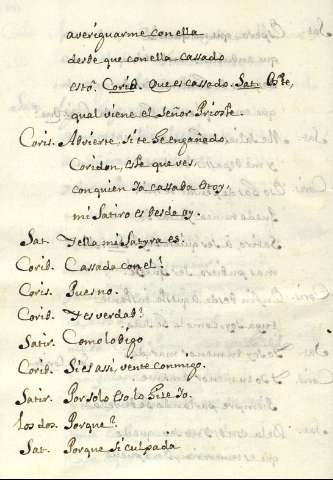 averiguarme con ella
desde que con ella cassado
estoi. Corid. Que es cassado. Sat. Oste,
qual viene el señor Prioste.
Coris. Advierte, si te he engañado,
Coridon, este que ves
con quien ia cassada estoy,
mi Satiro es desde oy.
Sat. I ella mi Satyra es.
Corid. Cassada con el!
Coris. Pues no.
Corid. I es verdad?
Satir. Como lo digo
Corid. Si es assi, vente conmigo.
Satir. Por solo eso lo hize Io.
Los dos. Porque?
Sat. Porque si culpada